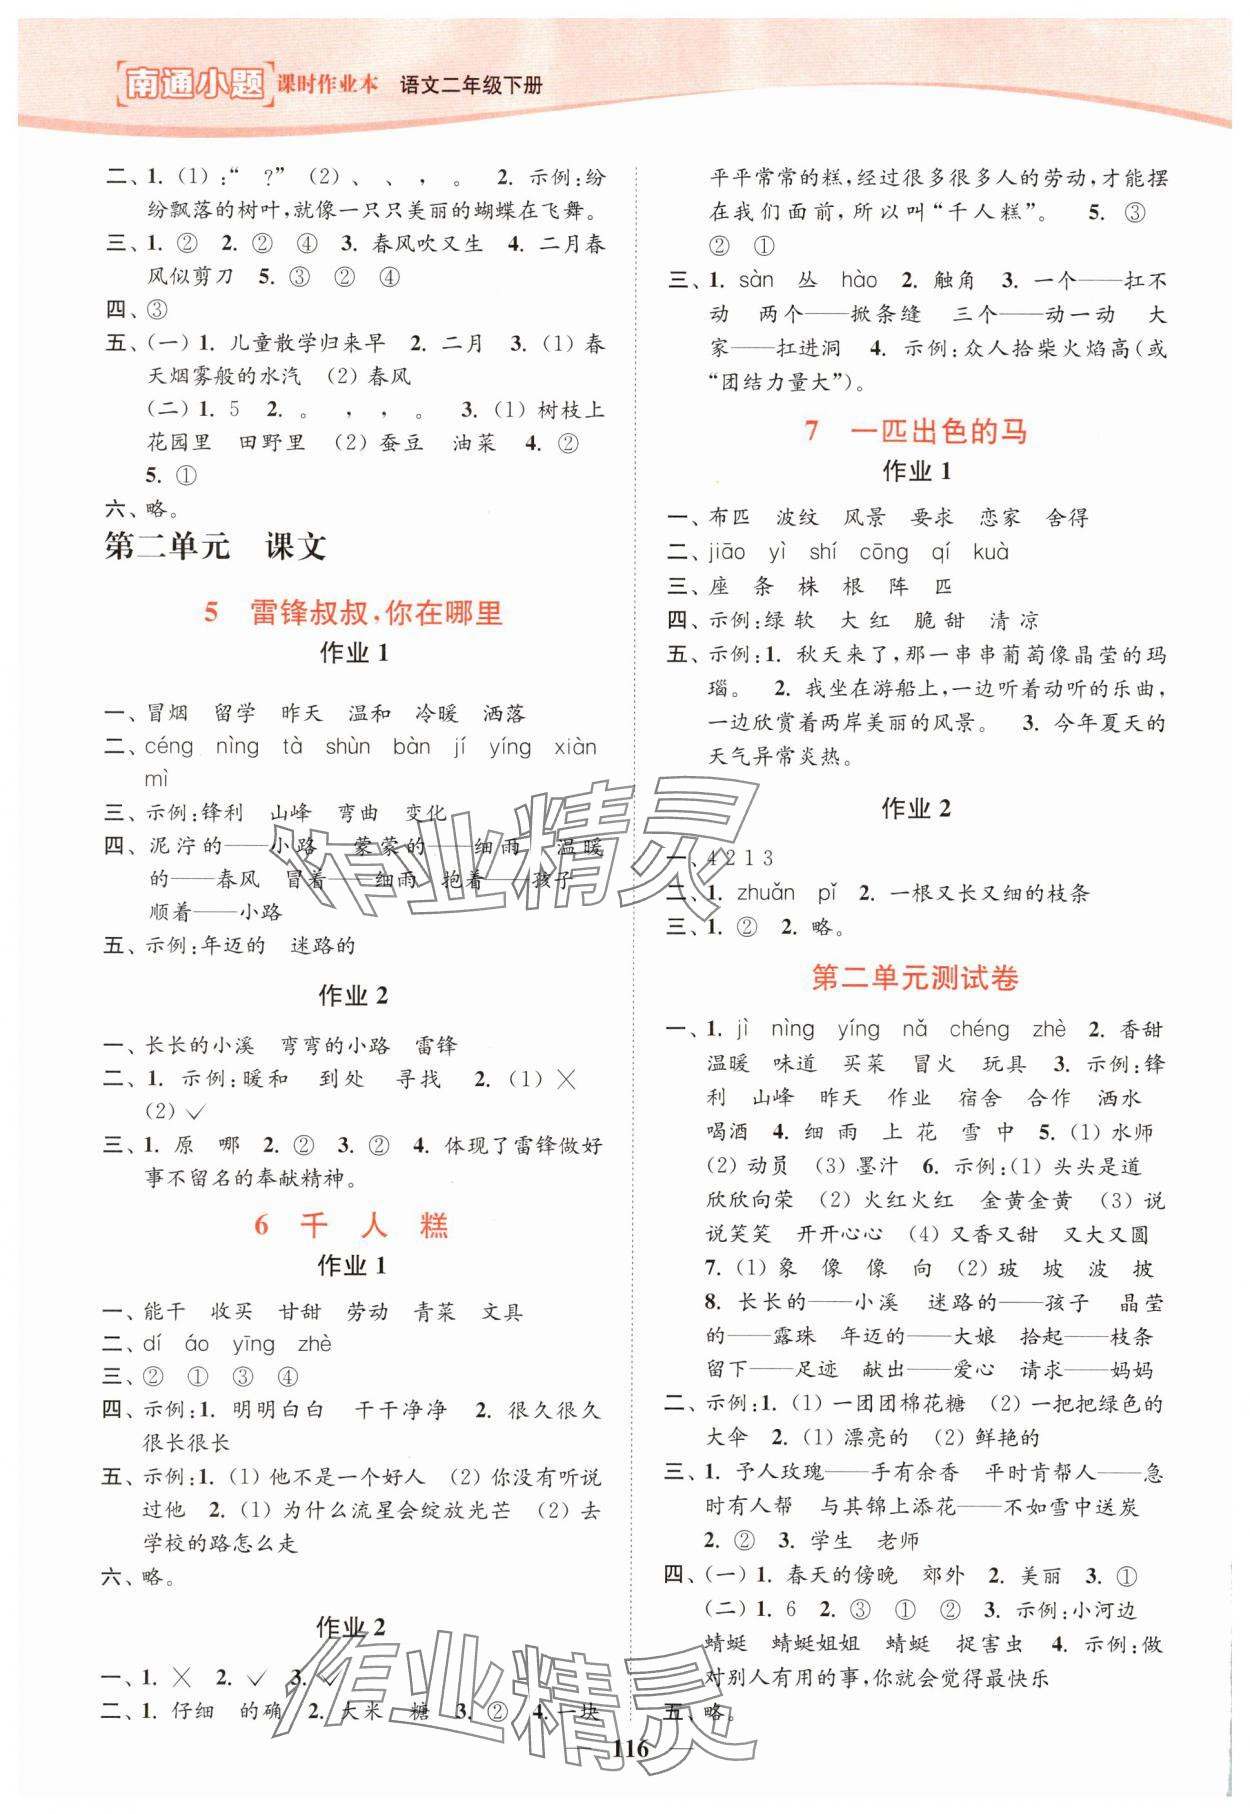 南通小题 课时作业本 语文二年级下册
二、1. (1)：“ ?” (2)、 、 ， 。 2. 示例：纷
纷飘落的树叶，就像一只只美丽的蝴蝶在飞舞。
三、1. ② 2. ② ④ 3. 春风吹又生 4. 二月春
风似剪刀 5. ③ ② ④
四、③
五、(一)1. 儿童散学归来早 2. 二月 3. (1) 春
天烟雾般的水汽 (2) 春风
(二)1. 5 2. 。 ， ， 。 3. (1) 树枝上
花园里 田野里 (2) 蚕豆 油菜 4. ②
5. ①
六、略。
第二单元 课文
5 雷锋叔叔，你在哪里
作业 1
一、冒烟 留学 昨天 温和 冷暖 洒落
二、céng nìng tà shùn bàn jí yíng xiàn
mì
三、示例：锋利 山峰 弯曲 变化
四、泥泞的——小路 蒙蒙的——细雨 温暖
的——春风 冒着——细雨 抱着——孩子
顺着——小路
五、示例：年迈的 迷路的
作业 2
一、长长的小溪 弯弯的小路 雷锋
二、1. 示例：暖和 到处 寻找 2. (1) ×
(2) ✓
三、1. 原 哪 2. ② 3. ② 4. 体现了雷锋做好
事不留名的奉献精神。
6 千 人 糕
作业 1
一、能干 收买 甘甜 劳动 青菜 文具
二、dí áo yīng zhè
三、② ① ③ ④
四、示例：1. 明明白白 干干净净 2. 很久很久
很长很长
五、示例：1. (1) 他不是一个好人 (2) 你没有听说
过他 2. (1) 为什么流星会绽放光芒 (2) 去
学校的路怎么走
六、略。
作业 2
一、1. × 2. ✓ 3. ✓
二、1. 仔细 的确 2. 大米 糖 3. ② 4. 一块
平平常常的糕，经过很多很多人的劳动，才能摆
在我们面前，所以叫“千人糕”。 5. ③
② ①
三、1. sàn 丛 hào 2. 触角 3. 一个——扛不
动 两个——掀条缝 三个——动一动 大
家——扛进洞 4. 示例：众人拾柴火焰高(或
“团结力量大”)。
7 一匹出色的马
作业 1
一、布匹 波纹 风景 要求 恋家 舍得
二、jiāo yì shí cōng qí kuà
三、座 条 株 根 阵 匹
四、示例：绿 软 大 红 脆 甜 清 凉
五、示例：1. 秋天来了，那一串串葡萄像晶莹的玛
瑙。 2. 我坐在游船上，一边听着动听的乐曲，
一边欣赏着两岸美丽的风景。 3. 今年夏天的
天气异常炎热。
作业 2
一、4 2 1 3
二、1. zhuǎn pǐ 2. 一根又长又细的枝条
三、1. ② 2. 略。
第二单元测试卷
一、1. jì nìng yíng nǎ chéng zhè 2. 香甜
温暖 味道 买菜 冒火 玩具 3. 示例：锋
利 山峰 昨天 作业 宿舍 合作 洒水
喝酒 4. 细 雨 上 花 雪 中 5. (1) 水师
(2) 动员 (3) 墨汁 6. 示例：(1) 头头是道
欣欣向荣 (2) 火红火红 金黄金黄 (3) 说
说笑笑 开开心心 (4) 又香又甜 又大又圆
7. (1) 象 像 像 向 (2) 玻 坡 波 披
8. 长长的——小溪 迷路的——孩子 晶莹
的——露珠 年迈的——大娘 拾起——枝条
留下——足迹 献出——爱心 请求——妈妈
二、示例：1. (1) 一团团棉花糖 (2) 一把把绿色的
大伞 2. (1) 漂亮的 (2) 鲜艳的
三、1. 予人玫瑰——手有余香 平时肯帮人——急
时有人帮 与其锦上添花——不如雪中送炭
2. ② 3. 学生 老师
四、(一)1. 春天的傍晚 郊外 2. 美丽 3. ①
(二)1. 6 2. ③ ① ② 3. 示例：小河边
蜻蜓 蜻蜓姐姐 蜻蜓 捉害虫 4. 示例：做
对别人有用的事，你就会觉得最快乐
五、略。
116
作业精灵
作业精灵